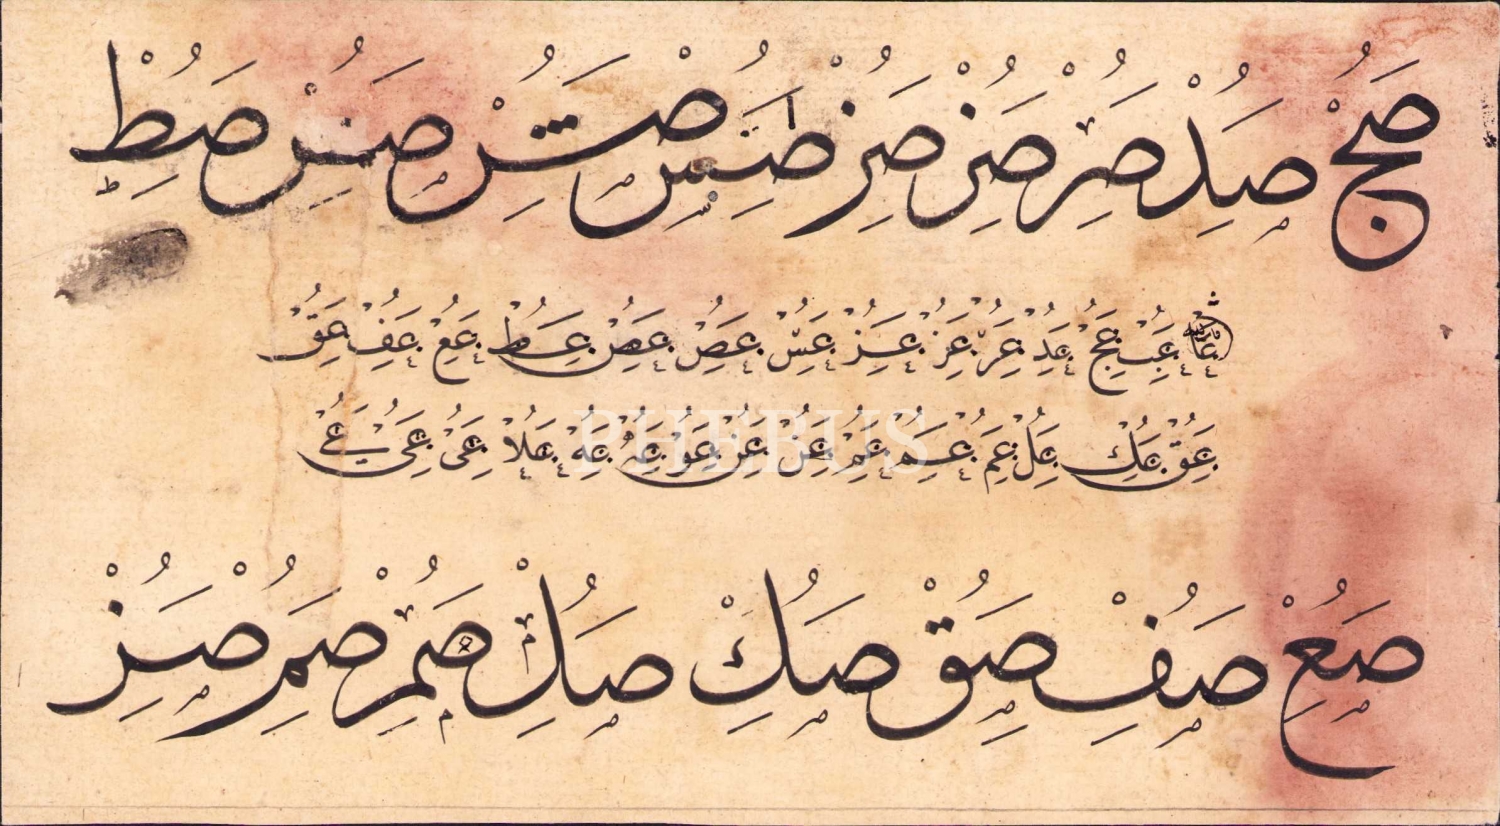 صج صد صر صز صز صس صش صط
عا عب عج عد عر عز عز عس عص عص عط عع عف عق
عق عك عل عم عم عم عن عن عو عه عه علا عى عى عے
صع صف صق صك صل صم صم صن
PHEBUS